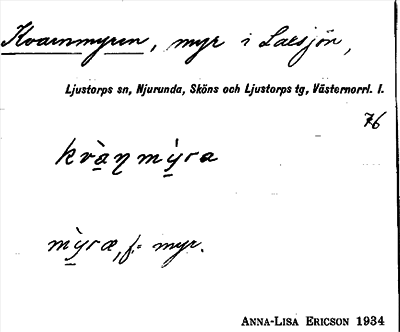 Kvarnmyren, myr i Laxsjön,
Ljustorps sn, Njurunda, Sköns och Ljustorps tg, Västernorrl. l.
76
kvà̱ɳmỳ̱ra
mỳ̱ræ, f. myr.
ANNA-LISA ERICSON 1934